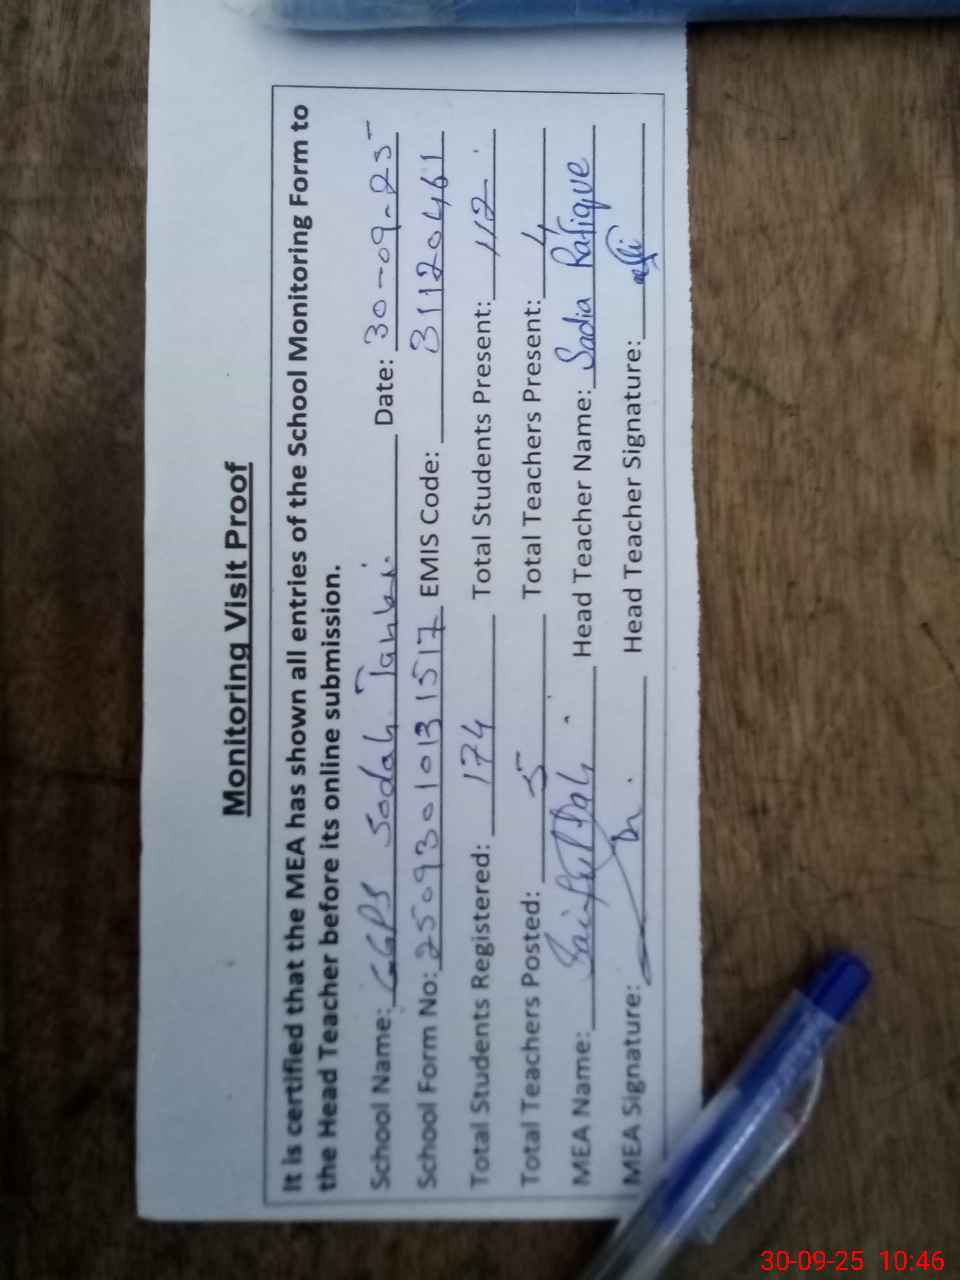 Monitoring Visit Proof
It is certified that the MEA has shown all entries of the School Monitoring Form to
the Head Teacher before its online submission.
School Name: GGPS Sodah Tanki. Date: 30-09-25
School Form No: 25093010131517 EMIS Code: 31120461
Total Students Registered: 174 Total Students Present: 112.
Total Teachers Posted: 5 Total Teachers Present: 4
MEA Name: Head Teacher Name: Sadia Rafique
MEA Signature: Head Teacher Signature:
30-09-25 10:46